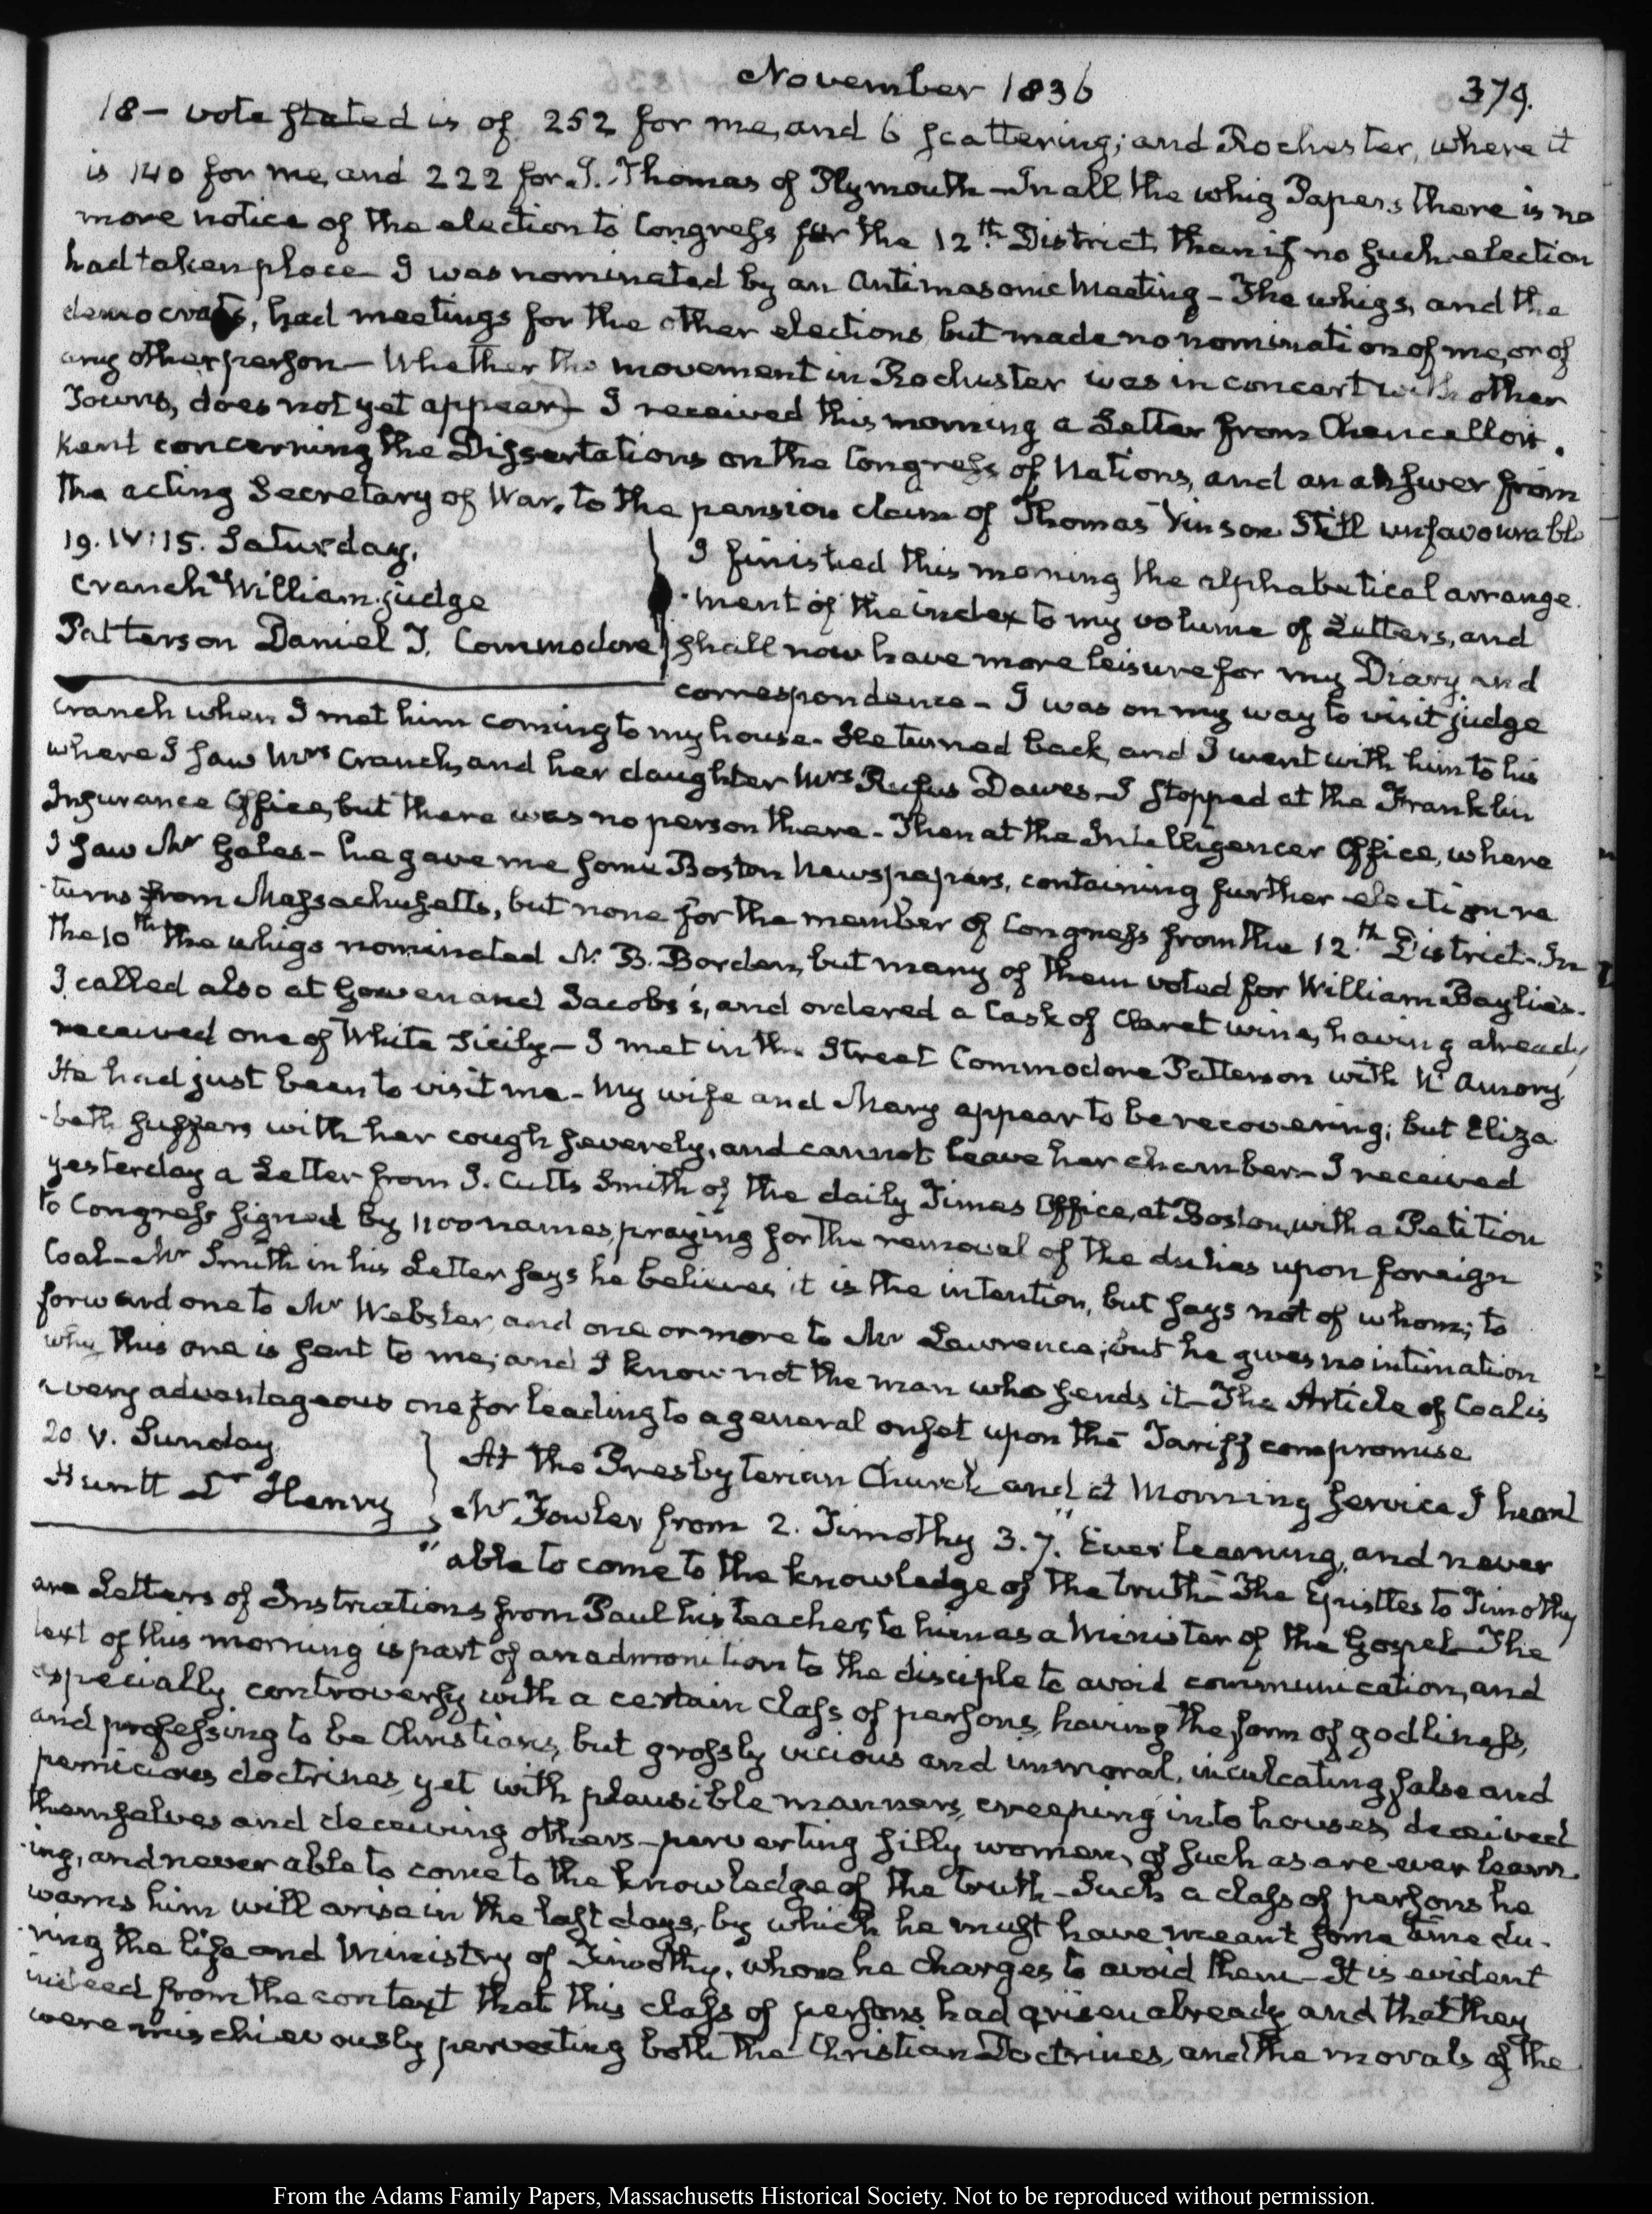 November 1836
379.
18 — vote stated is of 252 for me, and 6 scattering; and Rochester, where it
is 140 for me, and 222 for J. Thomas of Plymouth — In all the whig Papers there is no
more notice of the election to Congress for the 12th District, than if no such election
had taken place — I was nominated by an Antimasonic Meeting — The whigs, and the
democrats, had meetings for the other elections, but made no nomination of me, or of
any other person — Whether the movement in Rochester was in concert with other
Towns, does not yet appear — I received this morning a Letter from Chancellor
Kent concerning the Dissertations on the Congress of Nations, and an answer from
the acting Secretary of War, to the pension claim of Thomas Vinson Still unfavourable
19. IV:15. Saturday.
Cranch William judge
Patterson Daniel T. Commodore
I finished this morning the alphabetical arrange-
-ment of the index to my volume of Letters, and
shall now have more leisure for my Diary and
correspondence — I was on my way to visit judge
Cranch when I met him coming to my house — He turned back, and I went with him to his
where I saw Mrs Cranch, and her daughter Mrs Rufus Dawes — I stopped at the Franklin
Insurance Office, but there was no person there — Then at the Intelligencer Office, where
I saw Mr Gales — he gave me some Boston Newspapers, containing further election re
-turns from Massachusetts, but none for the member of Congress from the 12th District — In
the 10th the whigs nominated N. B. Borden, but many of them voted for William Baylies.
I called also at Gowen and Jacobs's, and ordered a Cask of Claret wine, having already
received one of White Sicily — I met in the Street Commodore Patterson with Mr Amory,
He had just been to visit me — My wife and Mary appear to be recovering; but Eliza
-beth suffers with her cough severely, and cannot leave her chamber — I received
yesterday a Letter from J. Cutts Smith of the daily Times Office, at Boston, with a Petition
to Congress signed by 1100 names, praying for the removal of the duties upon foreign
Coal — Mr Smith in his Letter says he believes it is the intention, but says not of whom; to
forward one to Mr Webster, and one or more to Mr Lawrence; but he gives no intimation
why this one is sent to me; and I know not the man who sends it — The Article of Coal is
a very advantageous one for leading to a general onset upon the Tariff compromise
20. V. Sunday
Huntt Dr Henry
At the Presbyterian Church, and at Morning service I heard
Mr Fowler from 2. Timothy 3.7. "Ever learning, and never
"able to come to the knowledge of the truth" — The Epistles to Timothy
are Letters of Instructions from Paul his teacher, to him as a Minister of the Gospel — The
text of this morning is part of an admonition to the disciple to avoid communication, and
especially controversy with a certain class of persons, having the form of godliness,
and professing to be Christians, but grossly vicious and immoral, inculcating false and
pernicious doctrines, yet with plausible manners, creeping into houses, deceived
themselves and deceiving others — perverting silly women, of such as are ever learn-
-ing, and never able to come to the knowledge of the truth — Such a class of persons he
warns him will arise in the last days, by which he must have meant some time du-
-ring the life and Ministry of Timothy, whom he charges to avoid them — It is evident
indeed from the context that this class of persons had arisen already, and that they
were mischievously perverting both the Christian Doctrines, and the morals of the
From the Adams Family Papers, Massachusetts Historical Society. Not to be reproduced without permission.